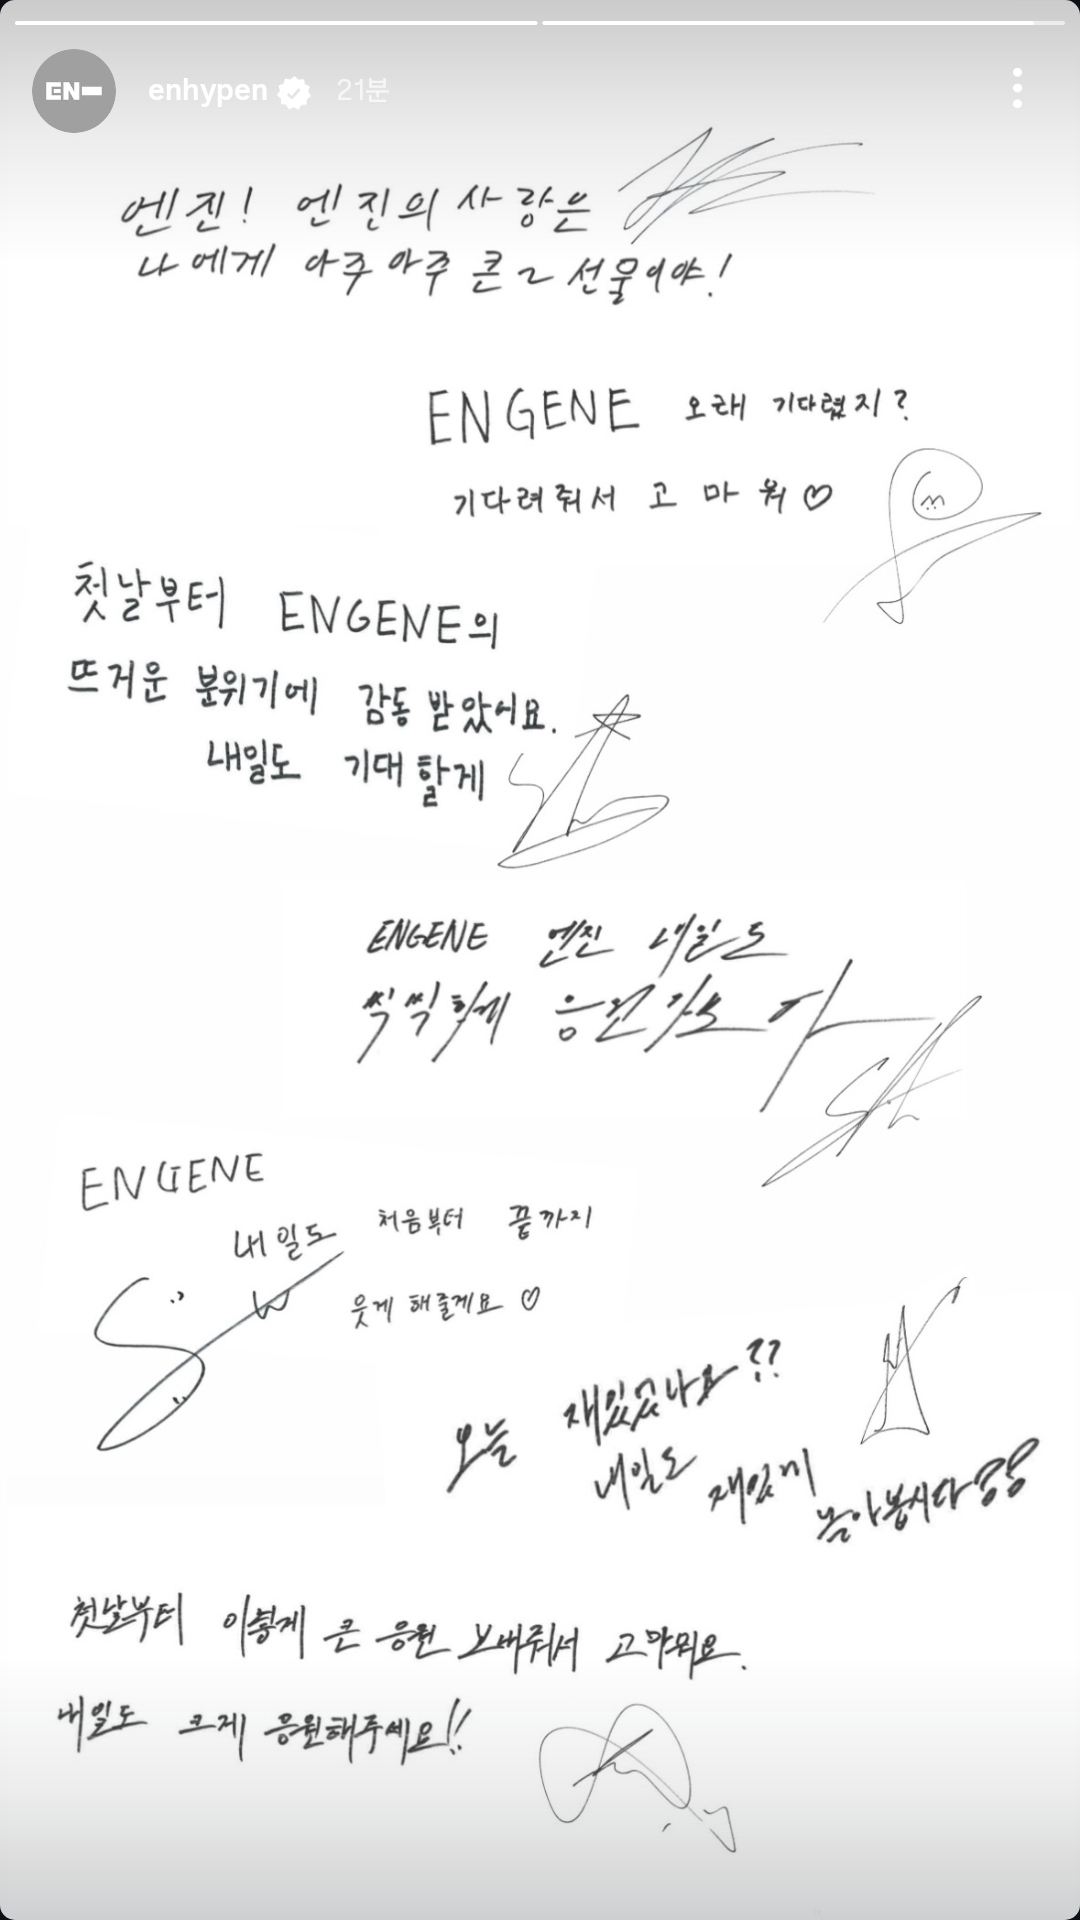 EN-
enhypen 21분
엔진! 엔진의 사랑은
나에게 아주 아주 큰 ~ 선물이야!
ENGENE 오래 기다렸지?
기다려줘서 고마워♡
첫날부터 ENGENE의
뜨거운 분위기에 감동 받았어요.
내일도 기대할게
ENGENE 엔진 내일도
씩씩하게 응원가보자
ENGENE
내일도 처음부터 끝까지
웃게 해줄게요 ♡
오늘 재밌었나요??
내일도 재밌게
놀아봅시다
첫날부터 이렇게 큰 응원 보내줘서 고마워요.
내일도 크게 응원해주세요!!